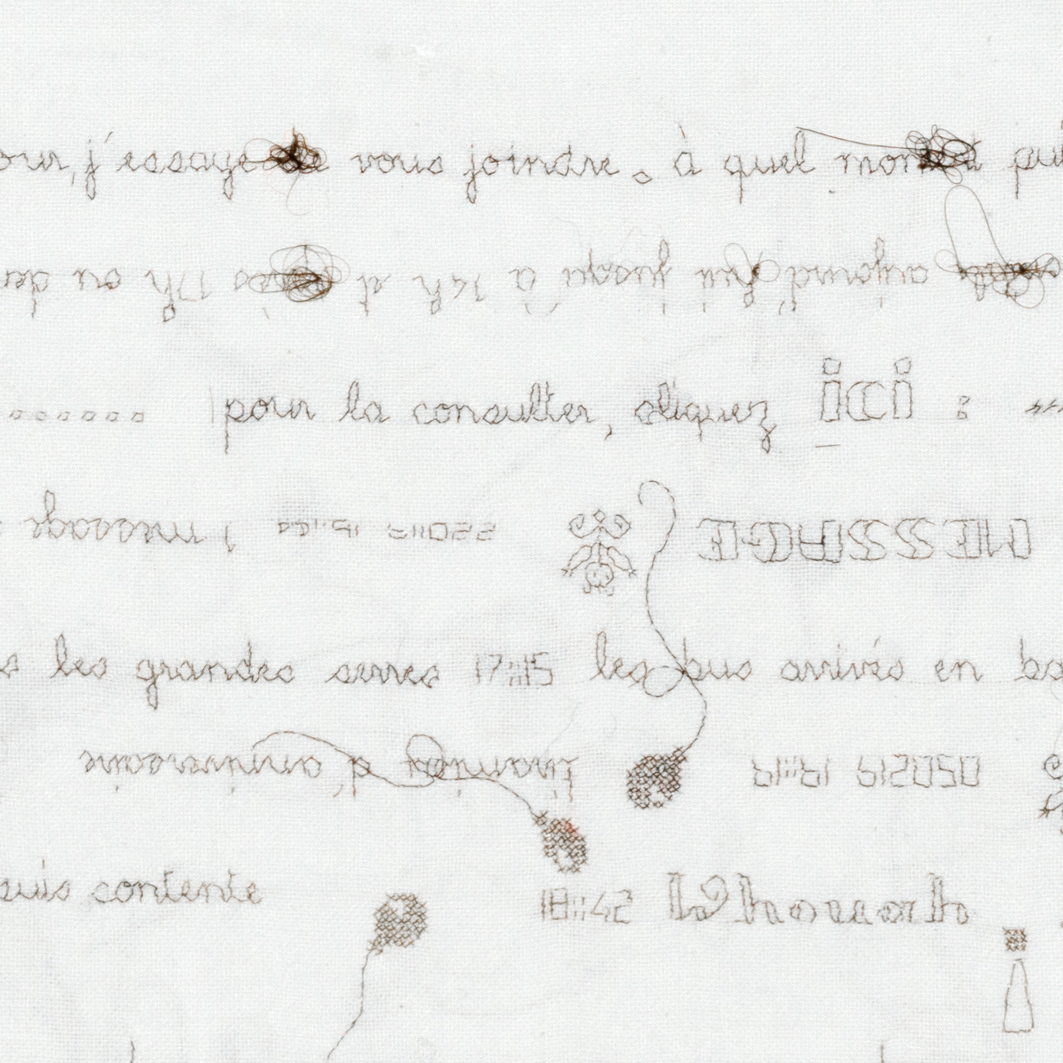 our, j'essaye de vous joindre. à quel moment pui
aujourd'hui jusqu'à 14h et après 17h ou dem
....... pour la consulter, cliquez ici : «
MESSAGE 15:44 1 message
s les grandes serres 17:15 les bus arrivés en ba
050219 18:19 d'anniversaire
suis contente 18:42 Whouarh